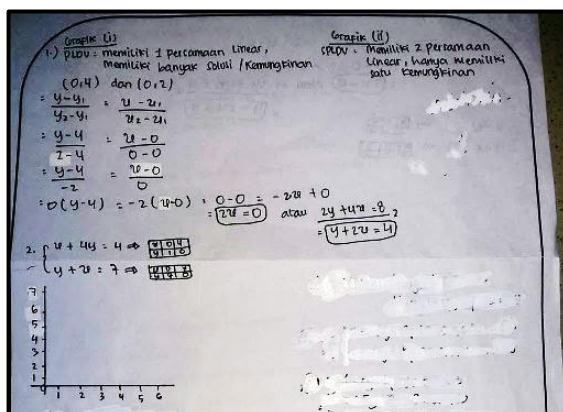 Grafik (i)
1.) PLDV : memiliki 1 persamaan Linear,
memiliki banyak solusi / kemungkinan
Grafik (ii)
SPLDV : Memiliki 2 persamaan
Linear, hanya memiliki
satu kemungkinan
(0,4) dan (0,2)
= y-y₁ / y₂-y₁ = x-x₁ / x₂-x₁
= y-4 / 2-4 = x-0 / 0-0
= y-4 / -2 = x-0 / 0
= 0(y-4) = -2(x-0) = 0-0 = -2x + 0
= 2x = 0 atau 2y + 4x = 8 2
= y + 2x = 4
2. { x + 4y = 4 ⇒ x 0 4
y 1 0
{ y + x = 7 ⇒
7
6
5
4
3
2
1
1 2 3 4 5 6